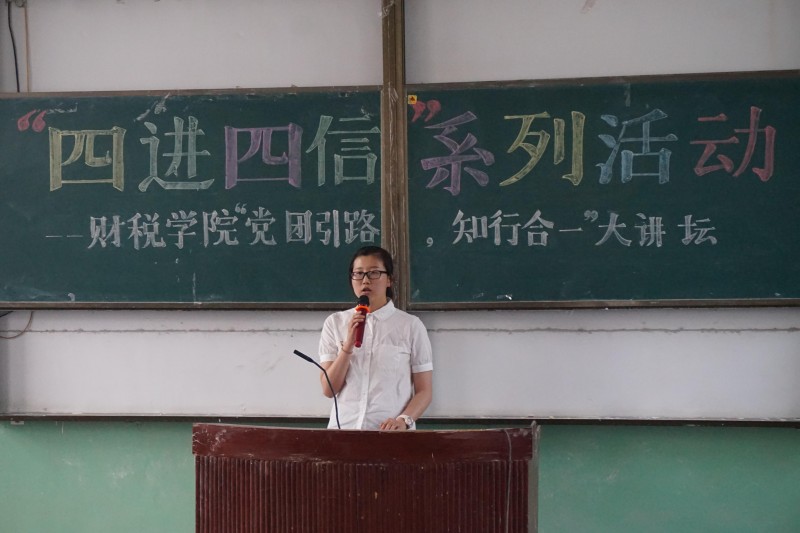 “四进四信”系列活动
——财税学院“党团引路，知行合一”大讲坛